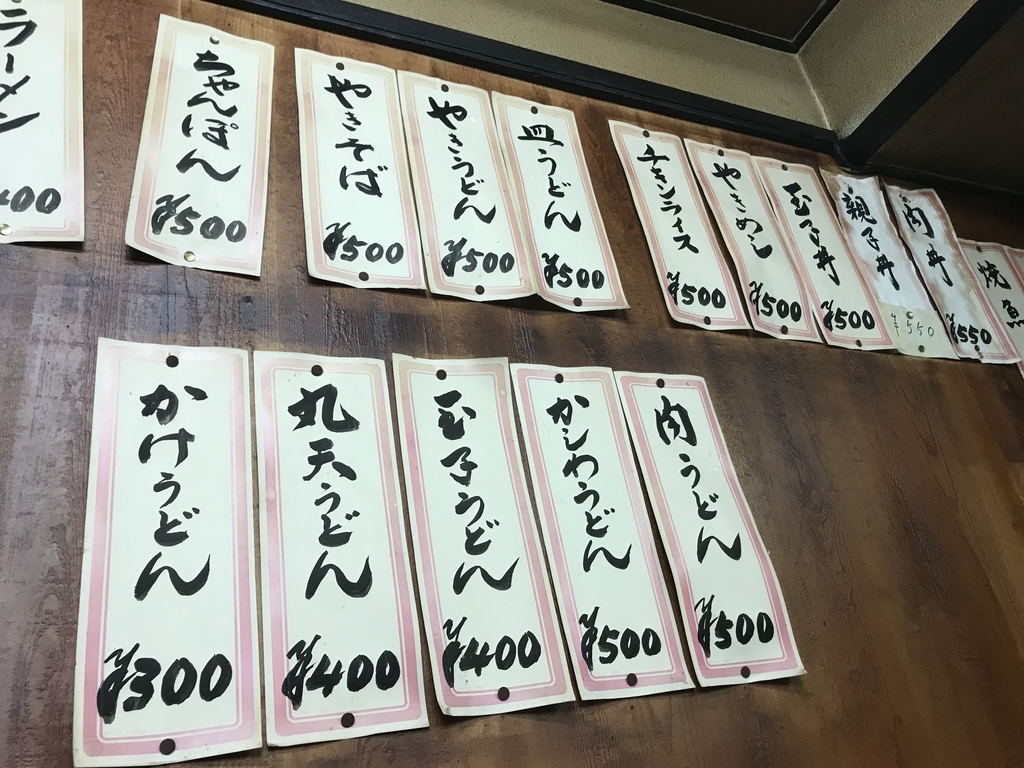 ラーメン
400
ちゃんぽん
¥500
やきそば
¥500
やきうどん
¥500
皿うどん
¥500
チキンライス
¥500
やきめし
¥500
玉子丼
¥500
親子丼
¥550
肉丼
¥550
焼魚
かけうどん
¥300
丸天うどん
¥400
玉子うどん
¥400
かしわうどん
¥500
肉うどん
¥500